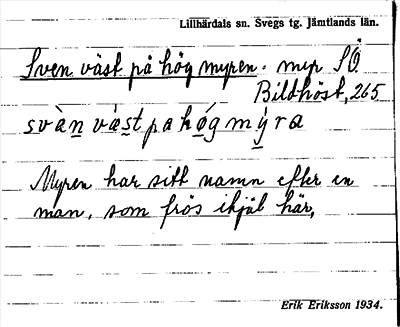 Lillhärdals sn. Svegs tg. Jämtlands län.
Sven väst på hög myren. myr SÖ
Bildhöst, 265
svàn väst pa høg mýra
Myren har sitt namn efter en
man, som frös ihjäl här,
Erik Eriksson 1934.